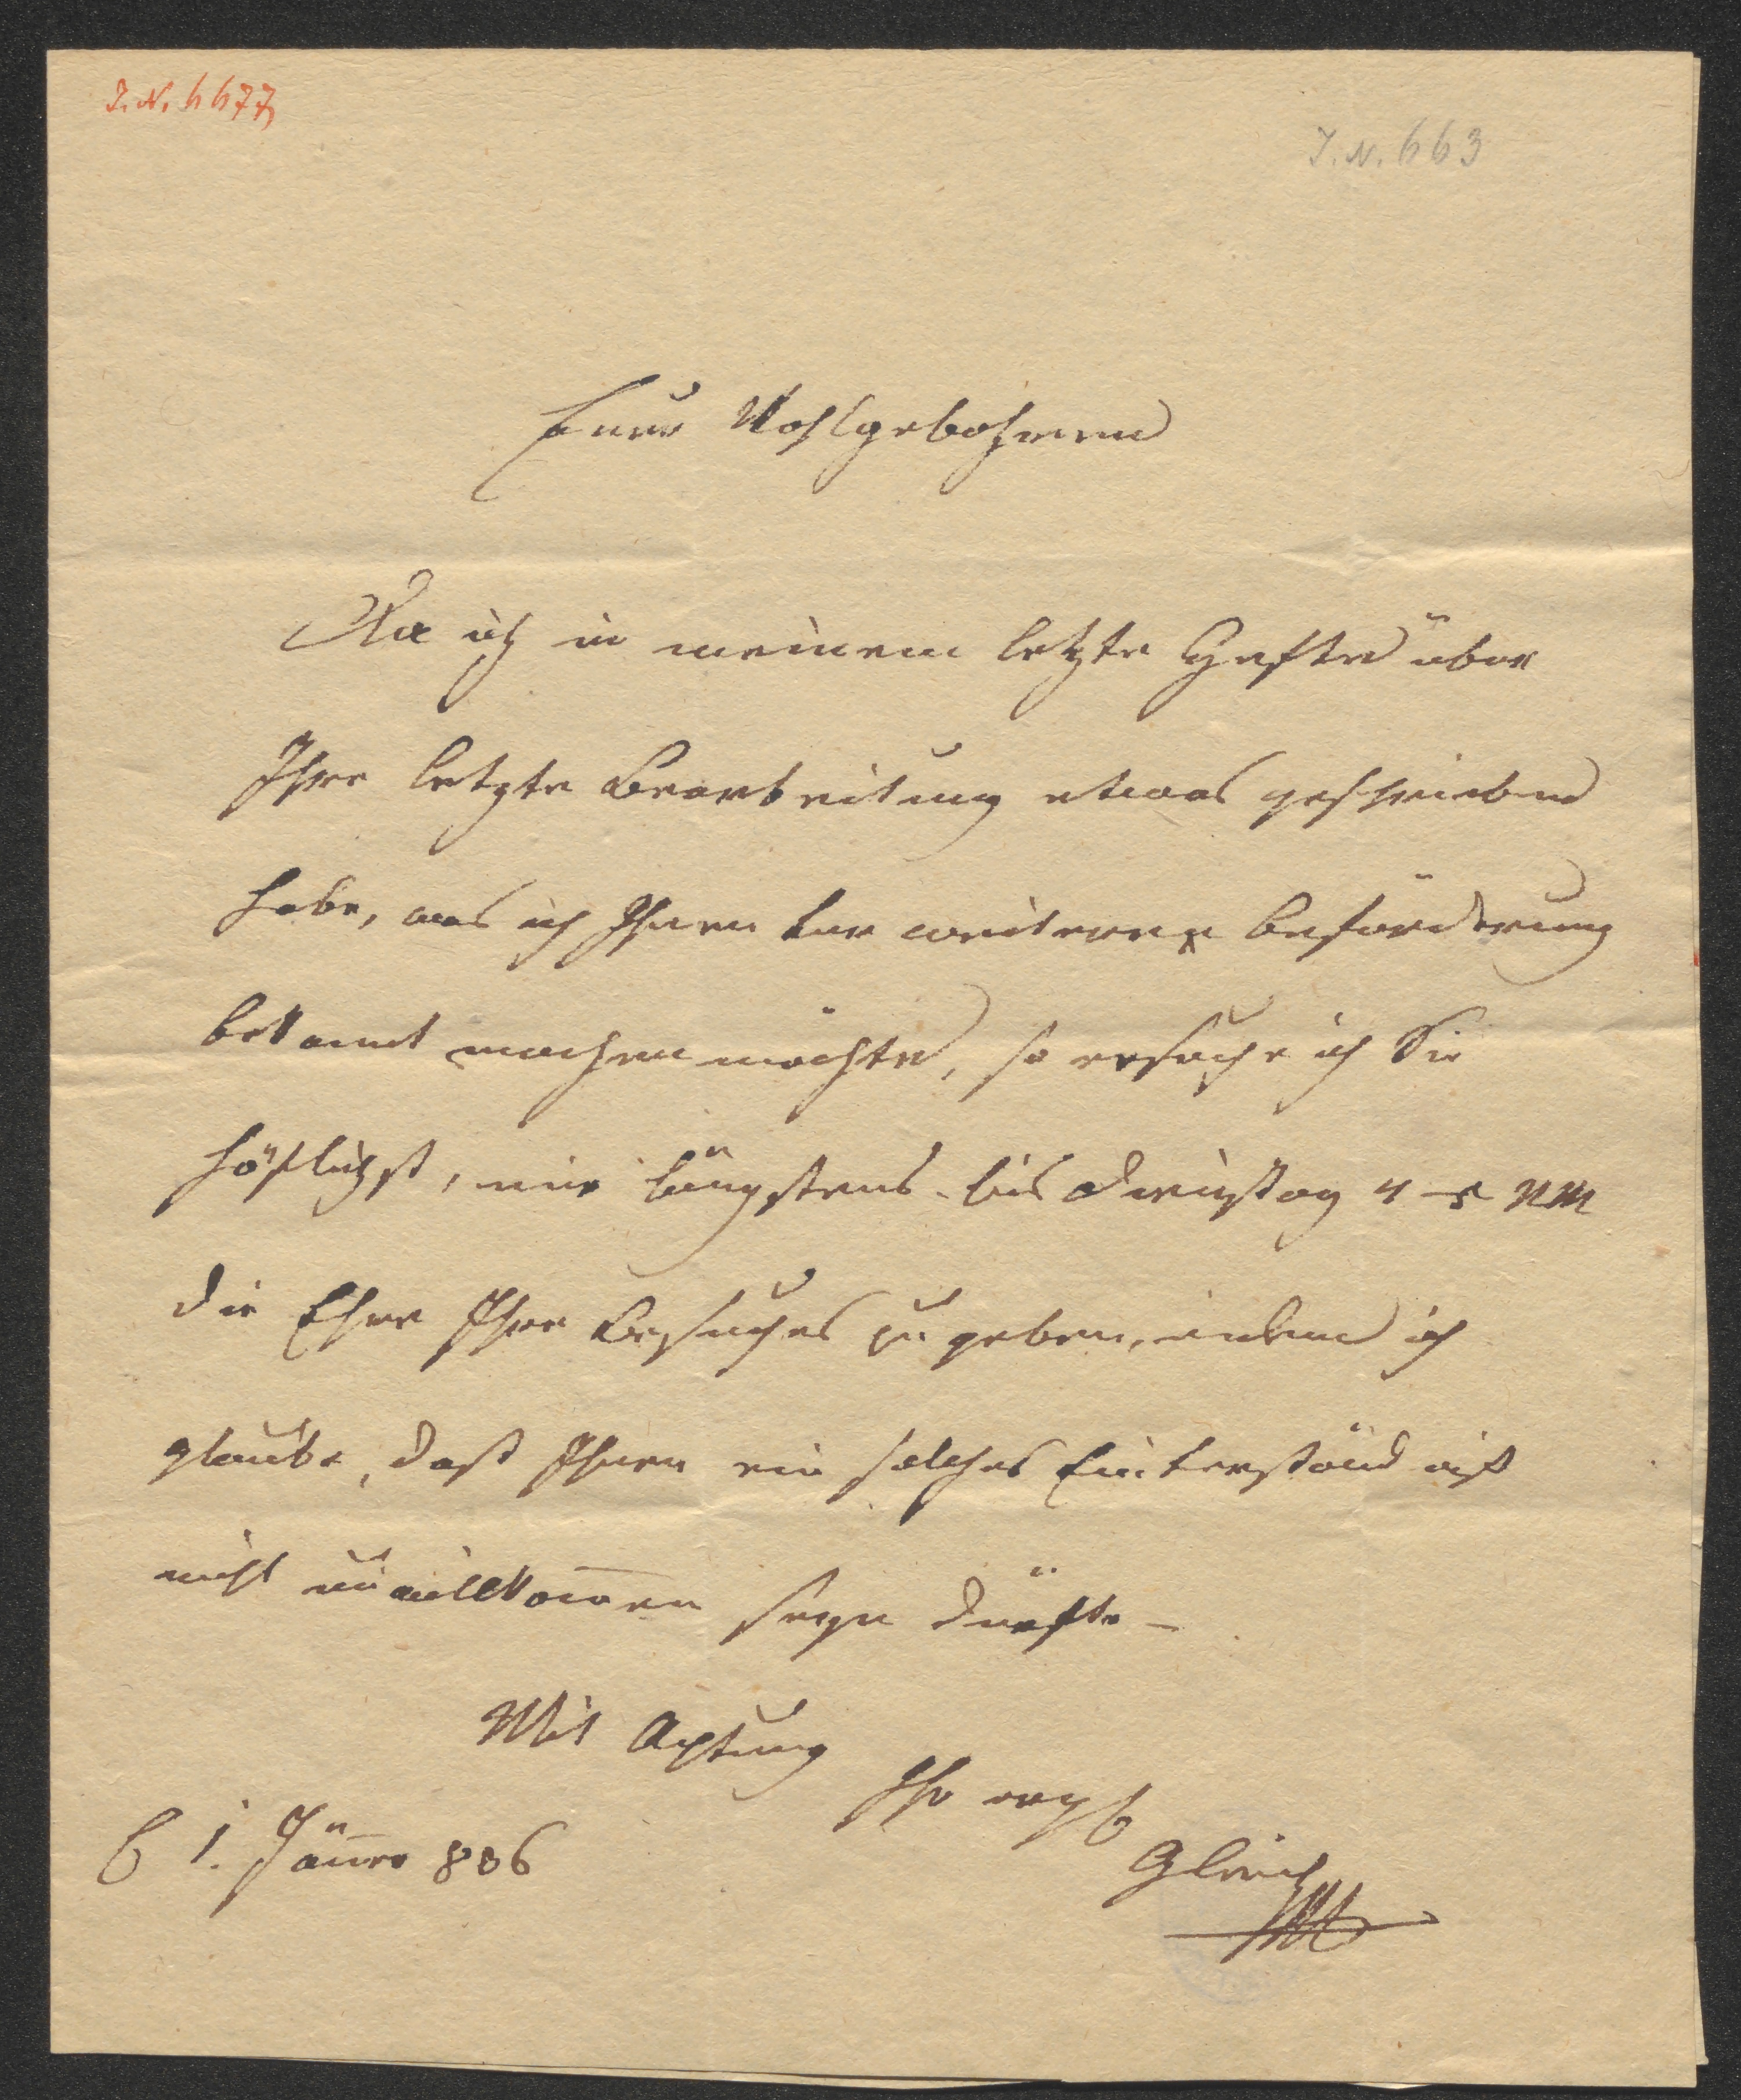 J. N. 6677
J. N. 663
Euer Wohlgebohrnen
Da ich in meinem letzte Hefte über
Ihre letzte Bearbeitung etwas geschrieben
habe, was ich Ihnen vor weiterer Beförderung
bekannt machen möchte, so ersuche ich Sie
höflichst, mir längstens bis Dienstag 4–5 NM
die Ehre Ihres Besuches zu geben, indem ich
glaube, dass Ihnen ein solches Einverständniß
nicht unwillkommen seyn dürfte –
Mit Achtung
Ihr ergb
1. Jänner 806
Gleich